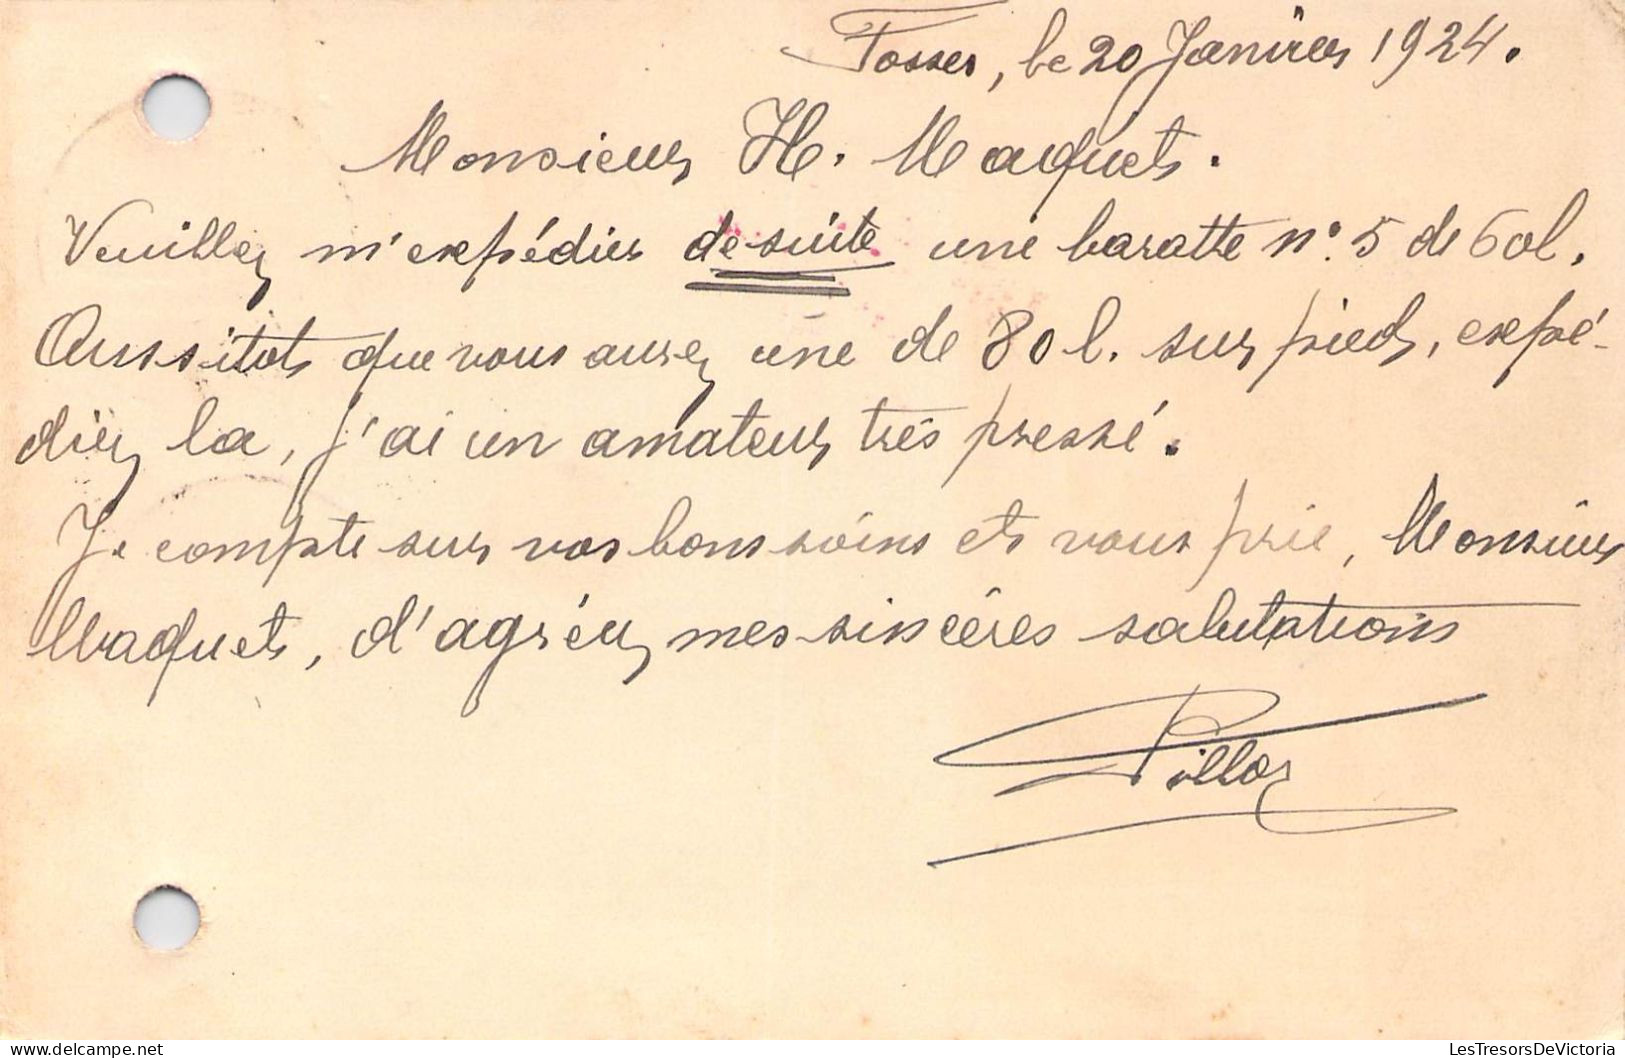 Fosses, le 20 Janvier 1924.
Monsieur H. Maquet.
Veuillez m'expédier de suite une baratte n° 5 de 60l.
Aussitot que vous aurez une de 80l. sur pied, expé-
diez la, j'ai un amateur très pressé.
Je compte sur vos bons soins et vous prie, Monsieur
Maquet, d'agréer mes sincères salutations
LesTresorsDeVictoria